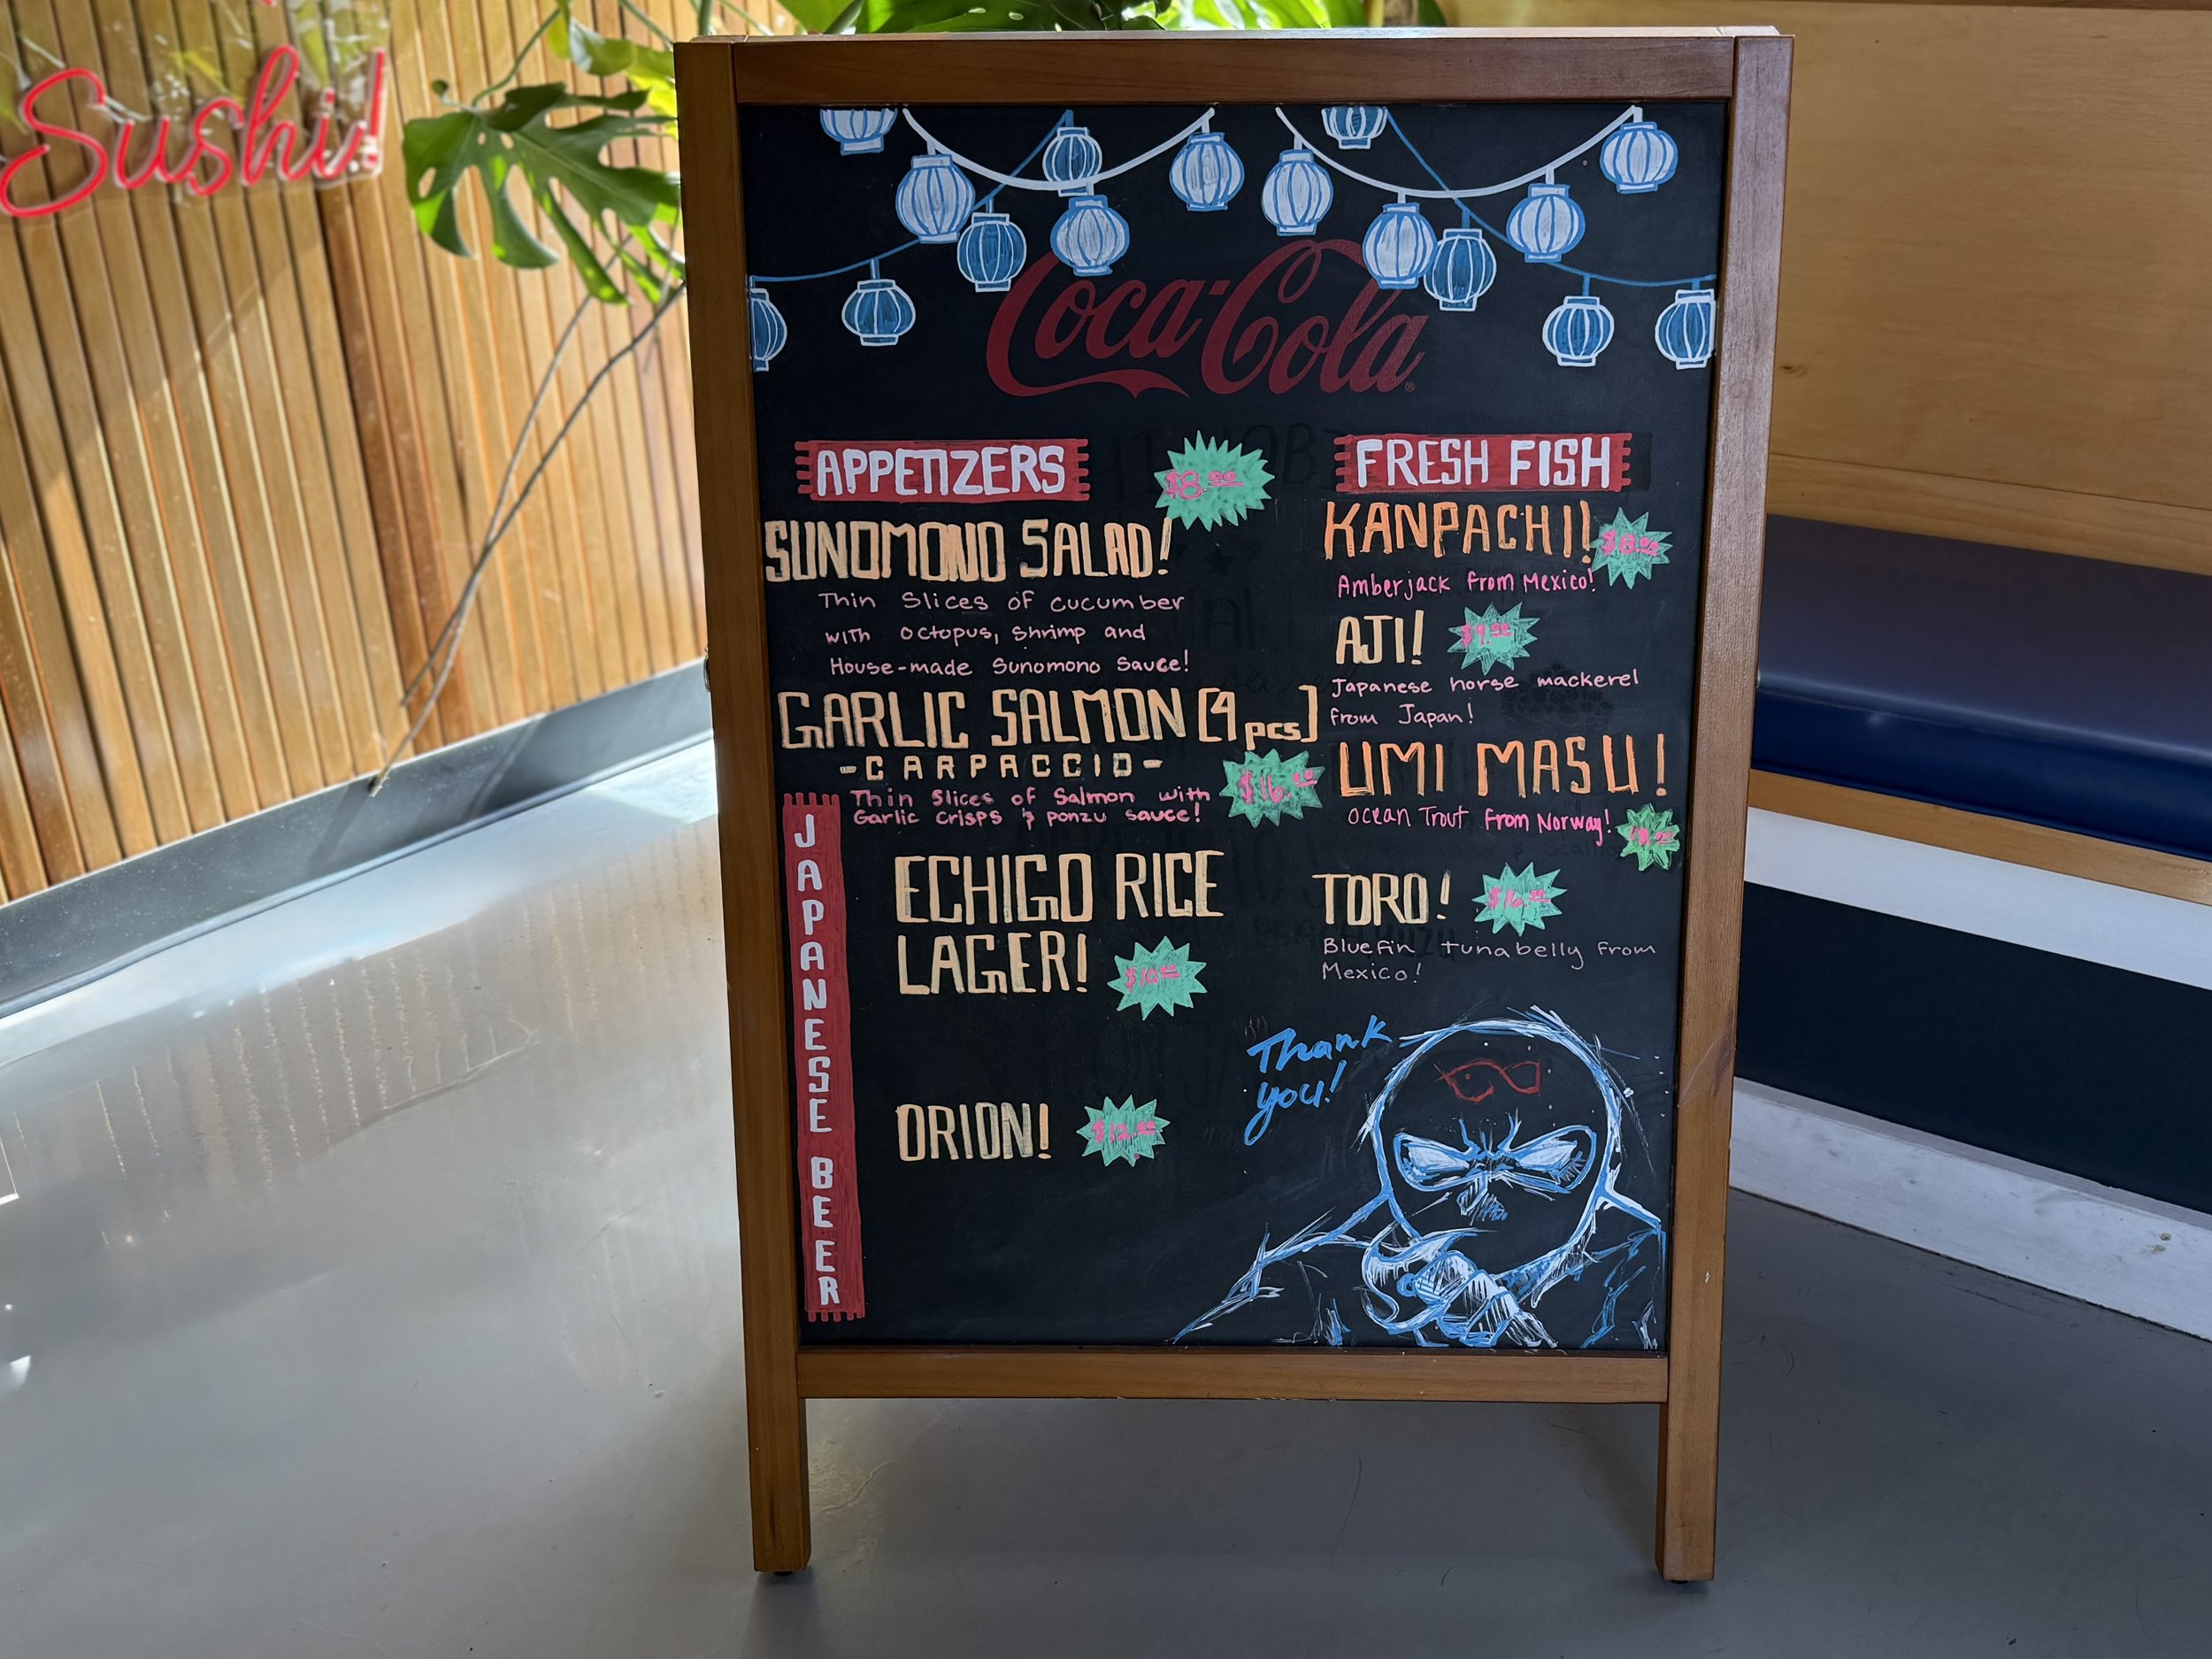 Sushi!
Coca-Cola
APPETIZERS
$8.00
SUNOMONO SALAD!
Thin Slices of cucumber
with octopus, shrimp and
House-made Sunomono Sauce!
GARLIC SALMON [4 pcs]
-CARPACCIO-
$16.00
Thin Slices of Salmon with
Garlic crisps & ponzu sauce!
JAPANESE BEER
ECHIGO RICE
LAGER!
$10.00
ORION!
$12.00
FRESH FISH
KANPACHI!
$8.00
Amberjack from Mexico!
AJI!
$9.00
Japanese horse mackerel
from Japan!
UMI MASU!
Ocean Trout from Norway!
TORO!
$16.00
Bluefin tuna belly from
Mexico!
Thank
you!